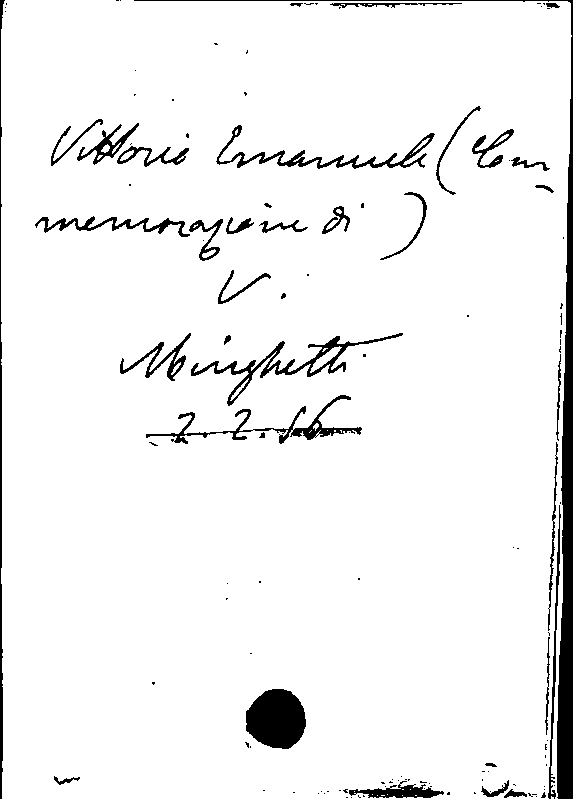 Vittorio Emanuele (Com-
memorazione di )
V.
Minghetti
2.2.56